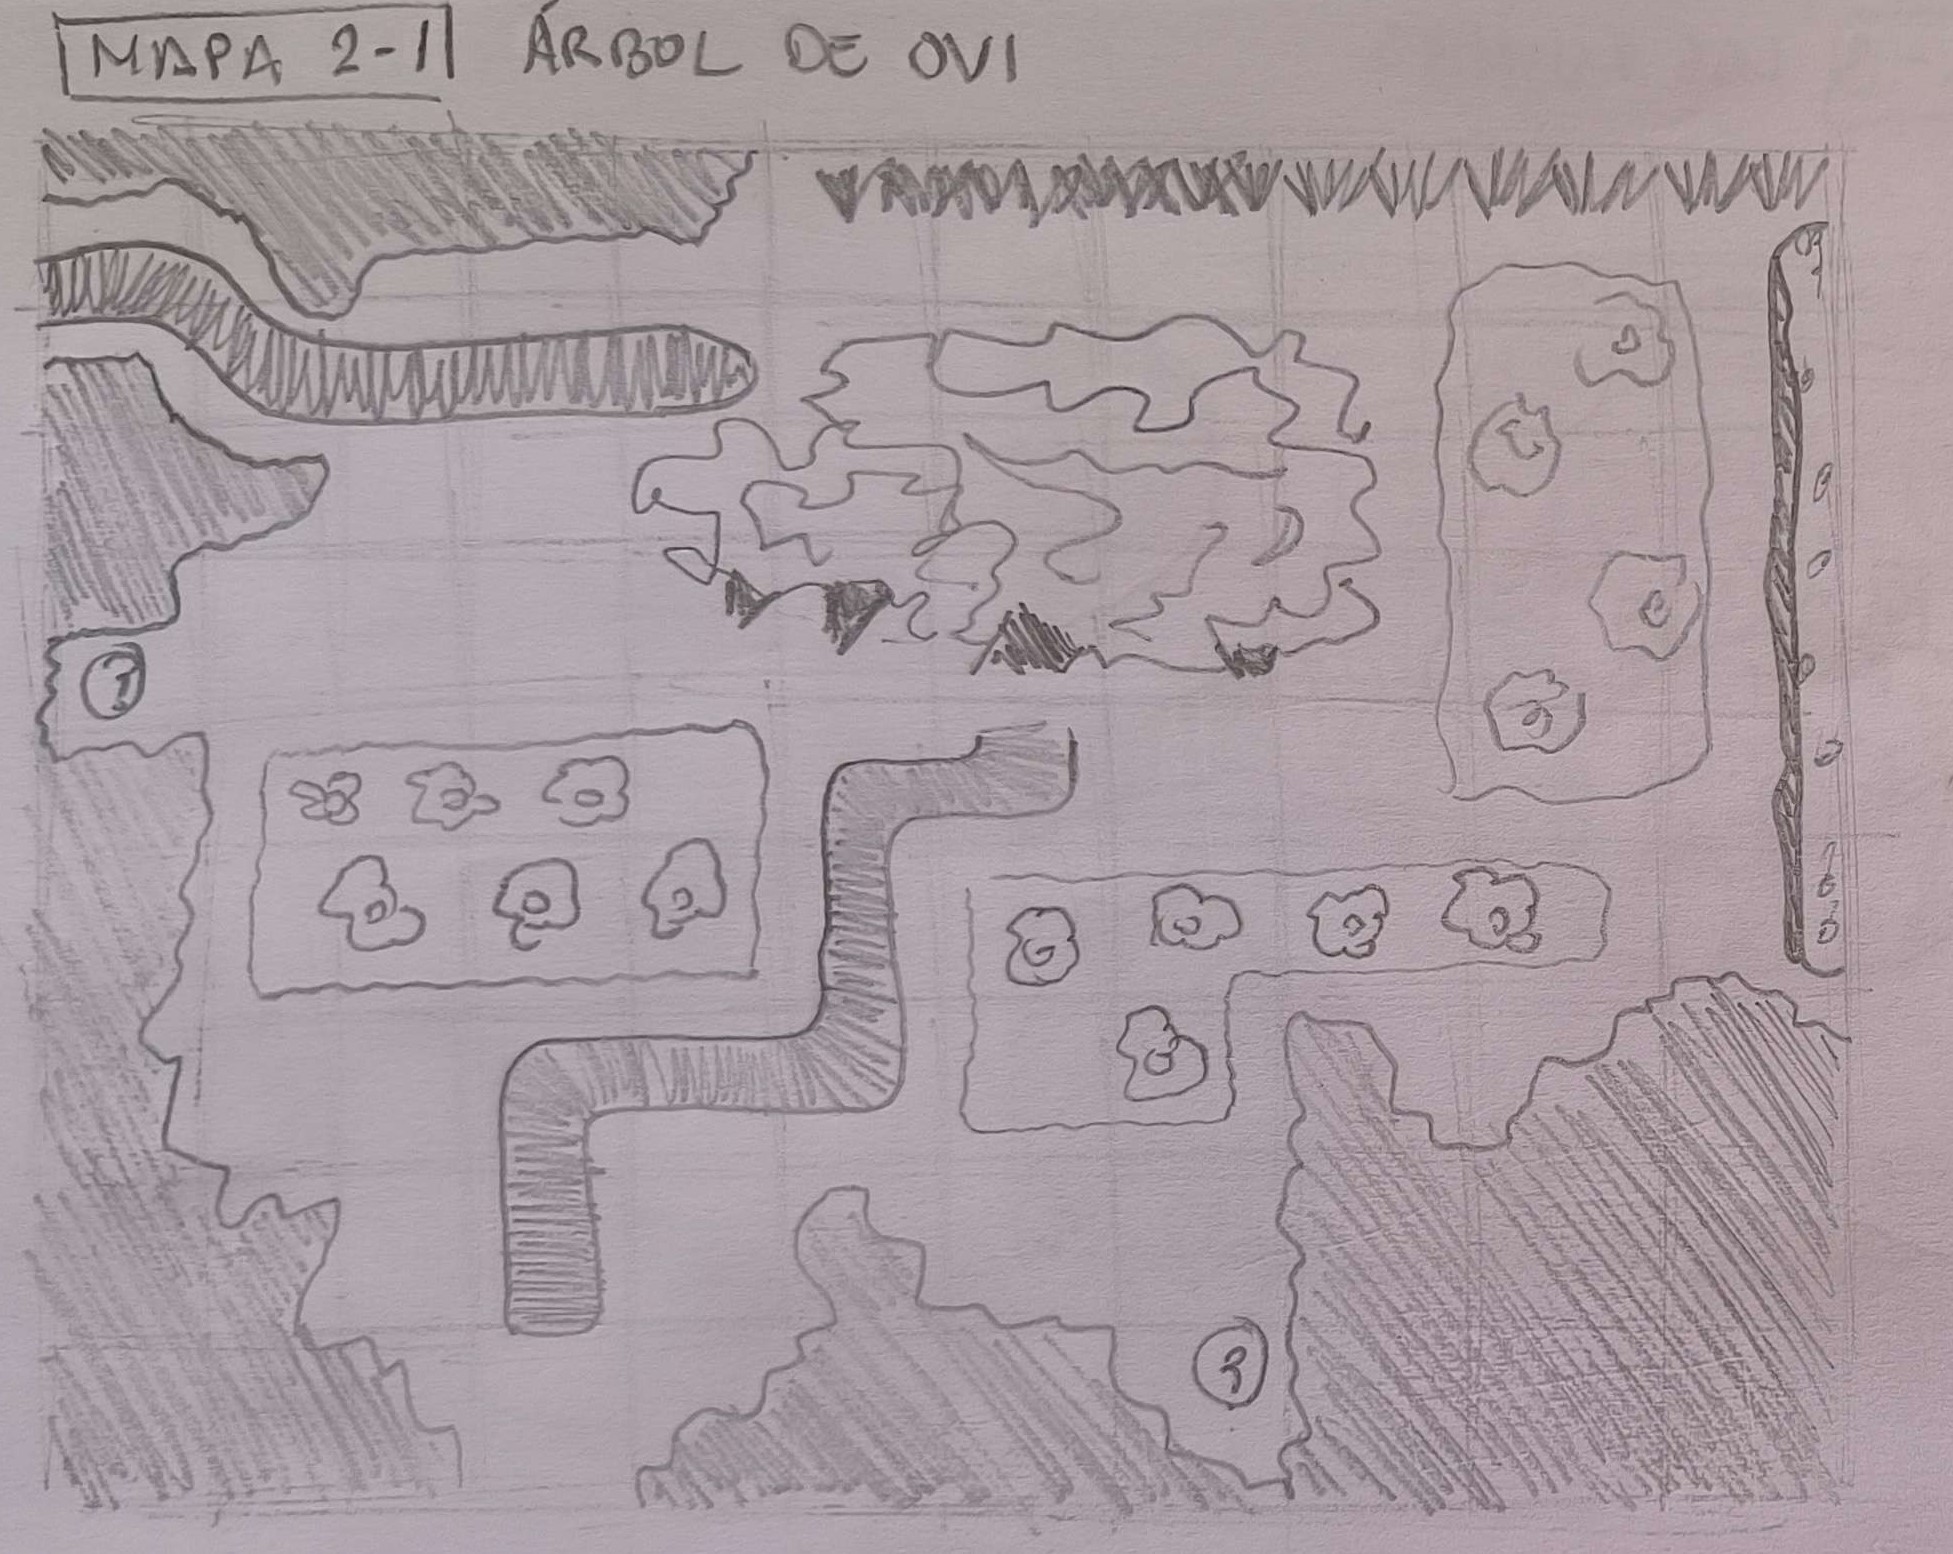 MAPA 2-1 ÁRBOL DE OVI